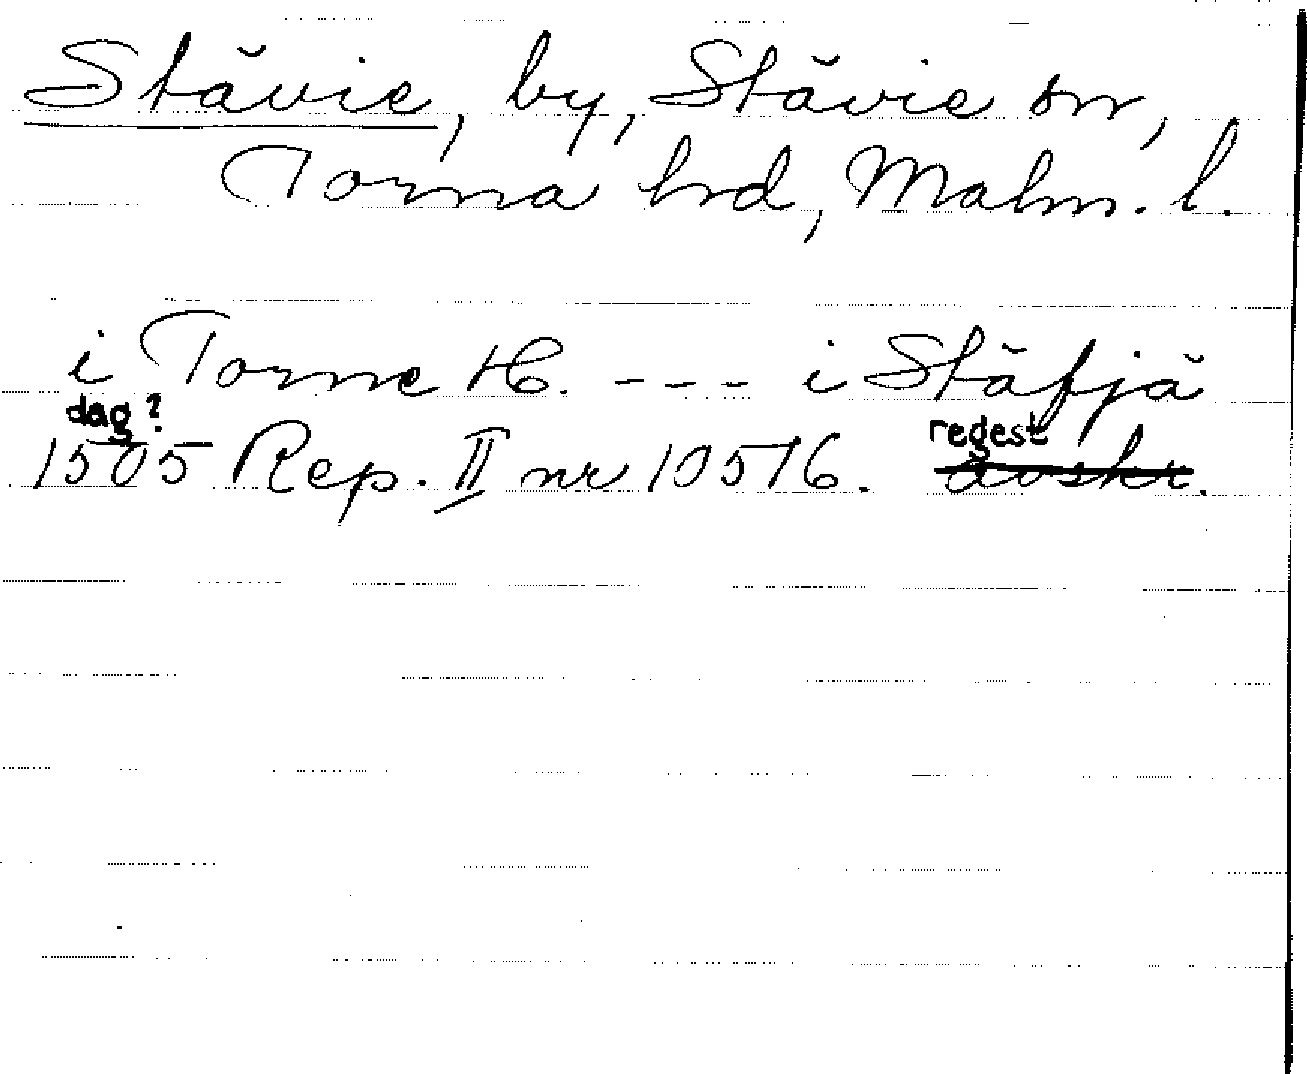 Stävie, by, Stävie sn,
Torna hd, Malm. l.
i Torne H. - - - i Stäfjä
dag? regest
1505 Rep. II nr 10516. avskr.